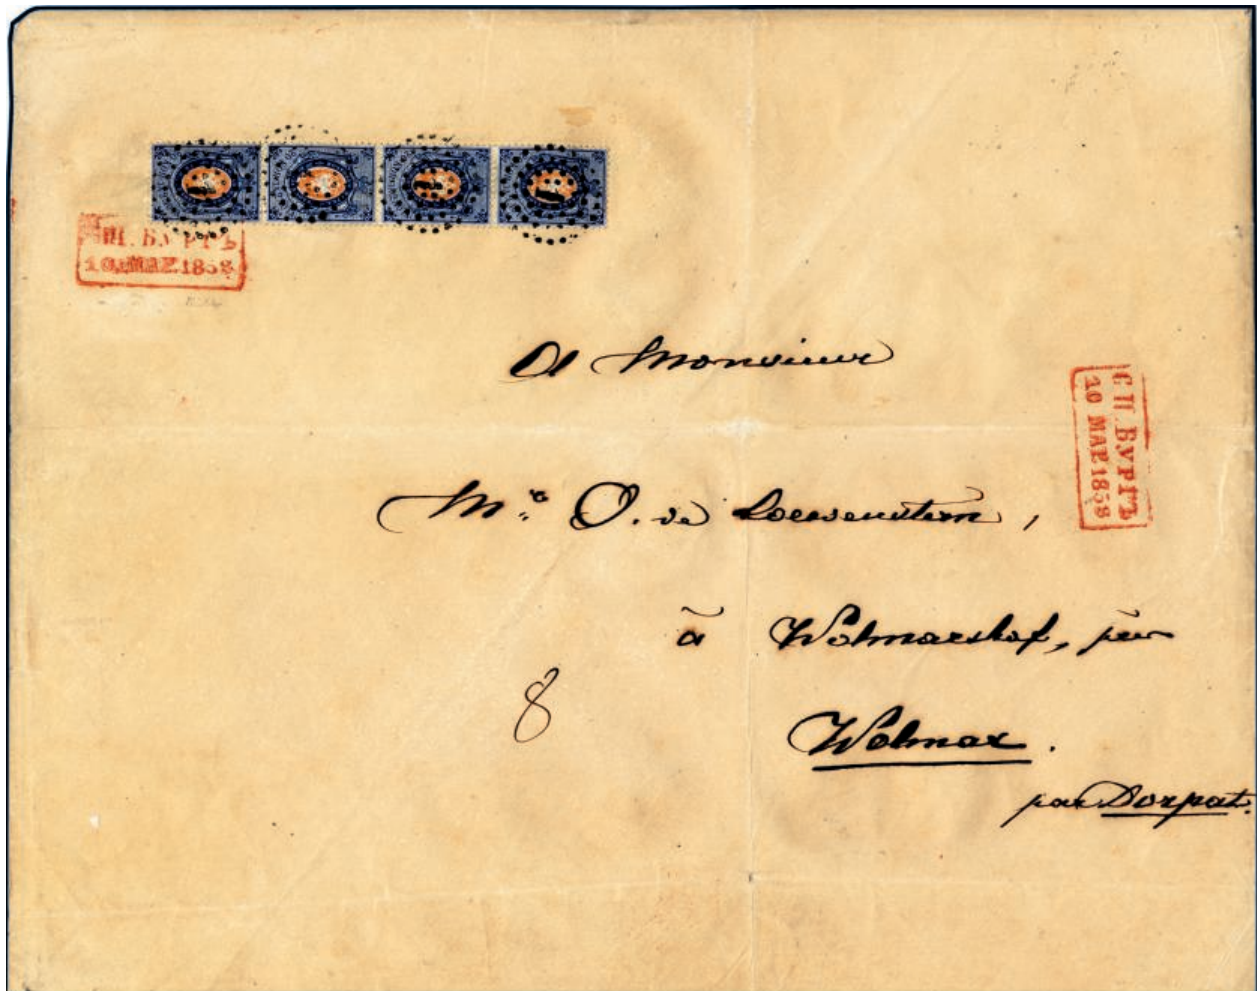 С.П.БУРГЪ
10 МАР.1858
A Monsieur
С П БУРГЪ
10 МАР.1858
Mr O. de Loewenstern,
à Wolmarshof, per
8
Wolmar.
par Dorpat.